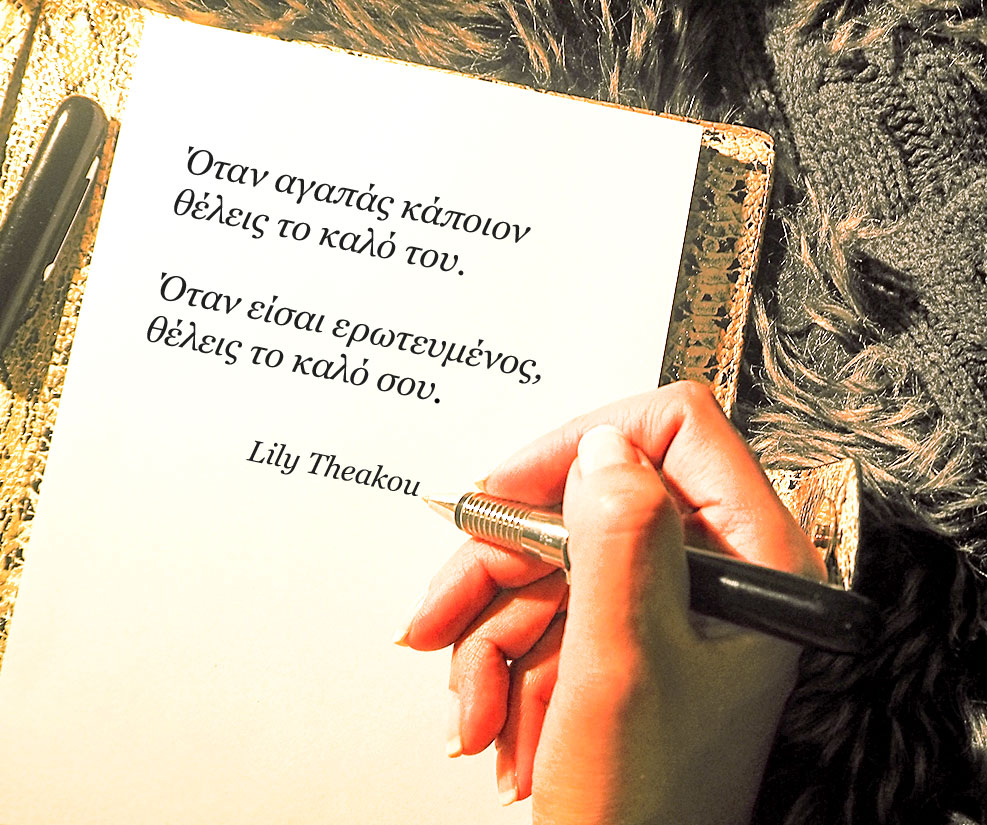 Όταν αγαπάς κάποιον
θέλεις το καλό του.
Όταν είσαι ερωτευμένος,
θέλεις το καλό σου.
Lily Theakou